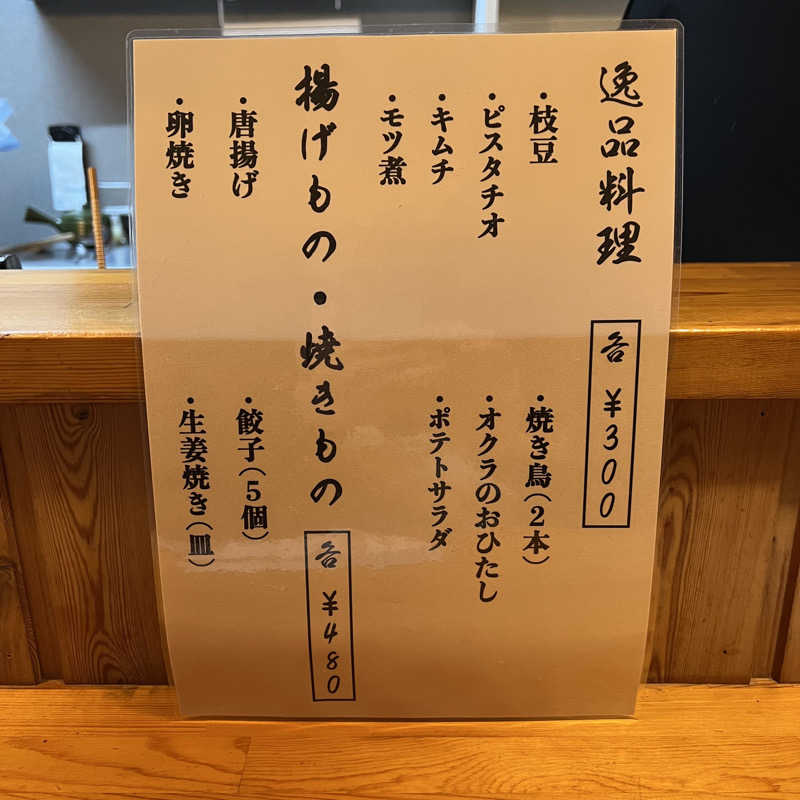 逸品料理 各 ¥300
・枝豆
・焼き鳥(2本)
・ピスタチオ
・オクラのおひたし
・キムチ
・ポテトサラダ
・モツ煮
揚げもの・焼きもの 各 ¥480
・唐揚げ
・餃子(5個)
・卵焼き
・生姜焼き(皿)